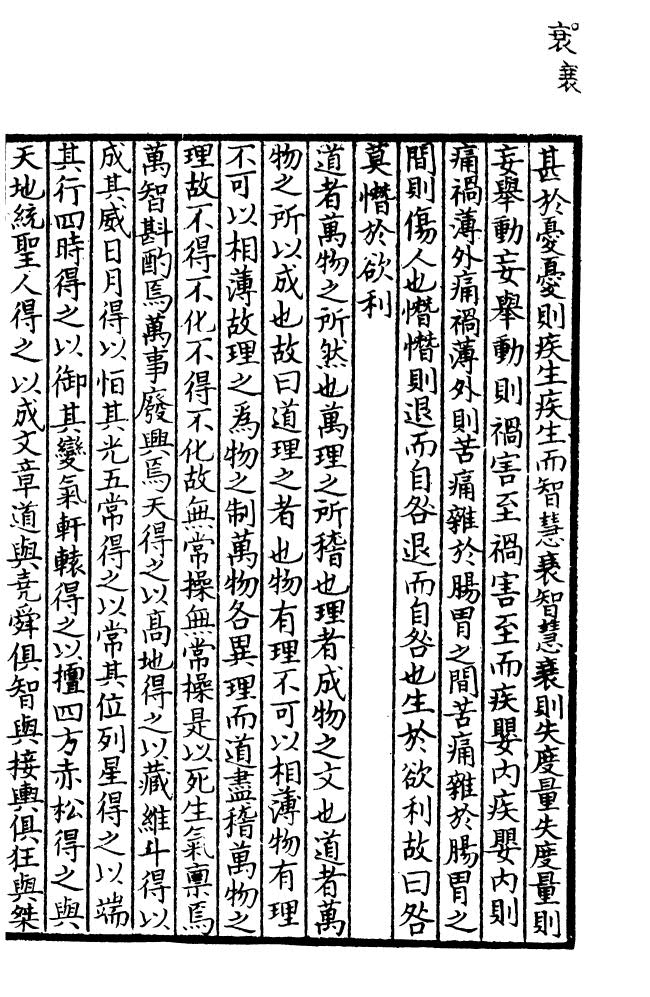 衰衰
甚於憂憂則疾生疾生而智慧衰智慧衰則失度量失度量則
妄舉動妄舉動則禍害至禍害至而疾嬰内疾嬰内則
痛禍薄外痛禍薄外則苦痛雜於腸胃之間苦痛雜於腸胃之
間則傷人也憯憯則退而自咎退而自咎也生於欲利故曰咎
莫憯於欲利
道者萬物之所然也萬理之所稽也理者成物之文也道者萬
物之所以成也故曰道理之者也物有理不可以相薄物有理
不可以相薄故理之爲物之制萬物各異理而道盡稽萬物之
理故不得不化不得不化故無常操無常操是以死生氣禀焉
萬智斟酌焉萬事廢興焉天得之以高地得之以藏維斗得以
成其威日月得以恒其光五常得之以常其位列星得之以端
其行四時得之以御其變氣軒轅得之以擅四方赤松得之與
天地統聖人得之以成文章道與堯舜俱智與接輿俱狂與桀